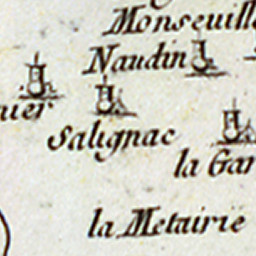 Monseuill
Naudin
uier
Salignac
la Gar
la Metairie